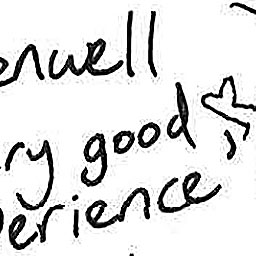 enwell
ry good
erience